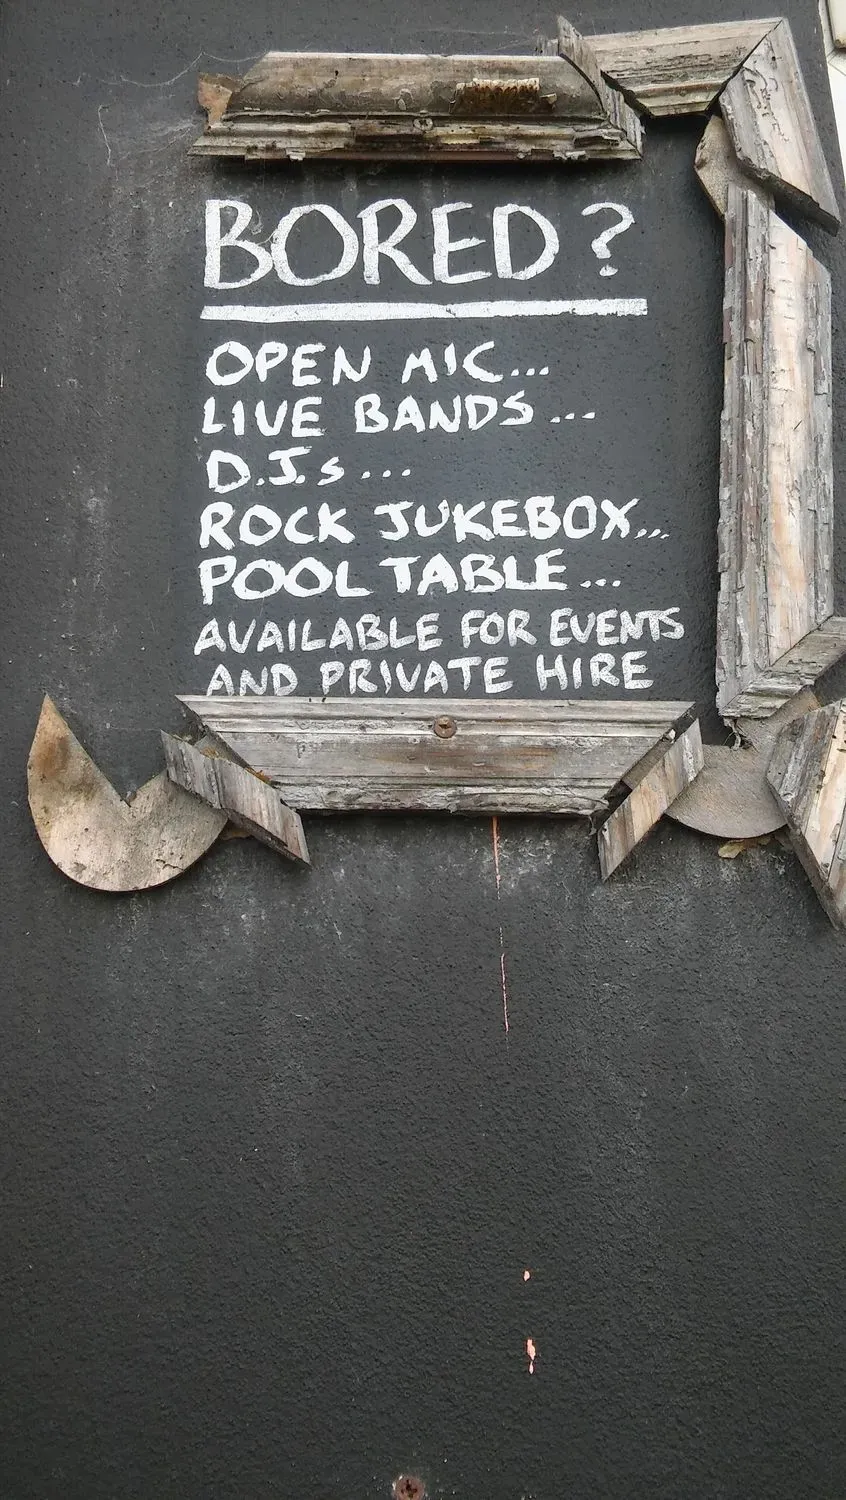 BORED?
OPEN MIC...
LIVE BANDS...
D.J.s...
ROCK JUKEBOX...
POOL TABLE...
AVAILABLE FOR EVENTS
AND PRIVATE HIRE